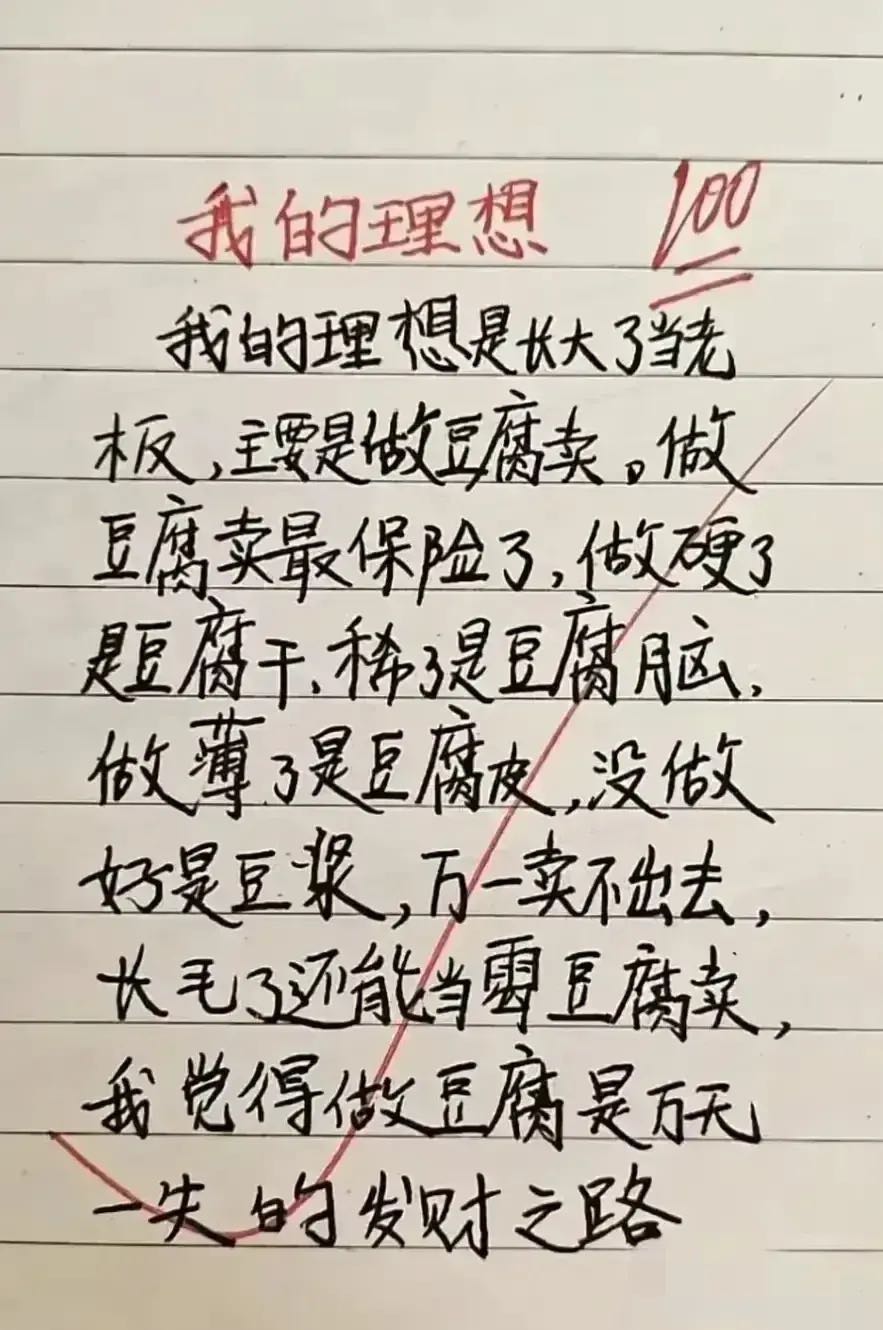 我的理想 100
我的理想是长大了当老
板,主要是做豆腐卖。做
豆腐卖最保险了,做硬了
是豆腐干,稀了是豆腐脑,
做薄了是豆腐皮,没做
好是豆浆,万一卖不出去,
长毛了还能当霉豆腐卖,
我觉得做豆腐是万天
一失的发财之路